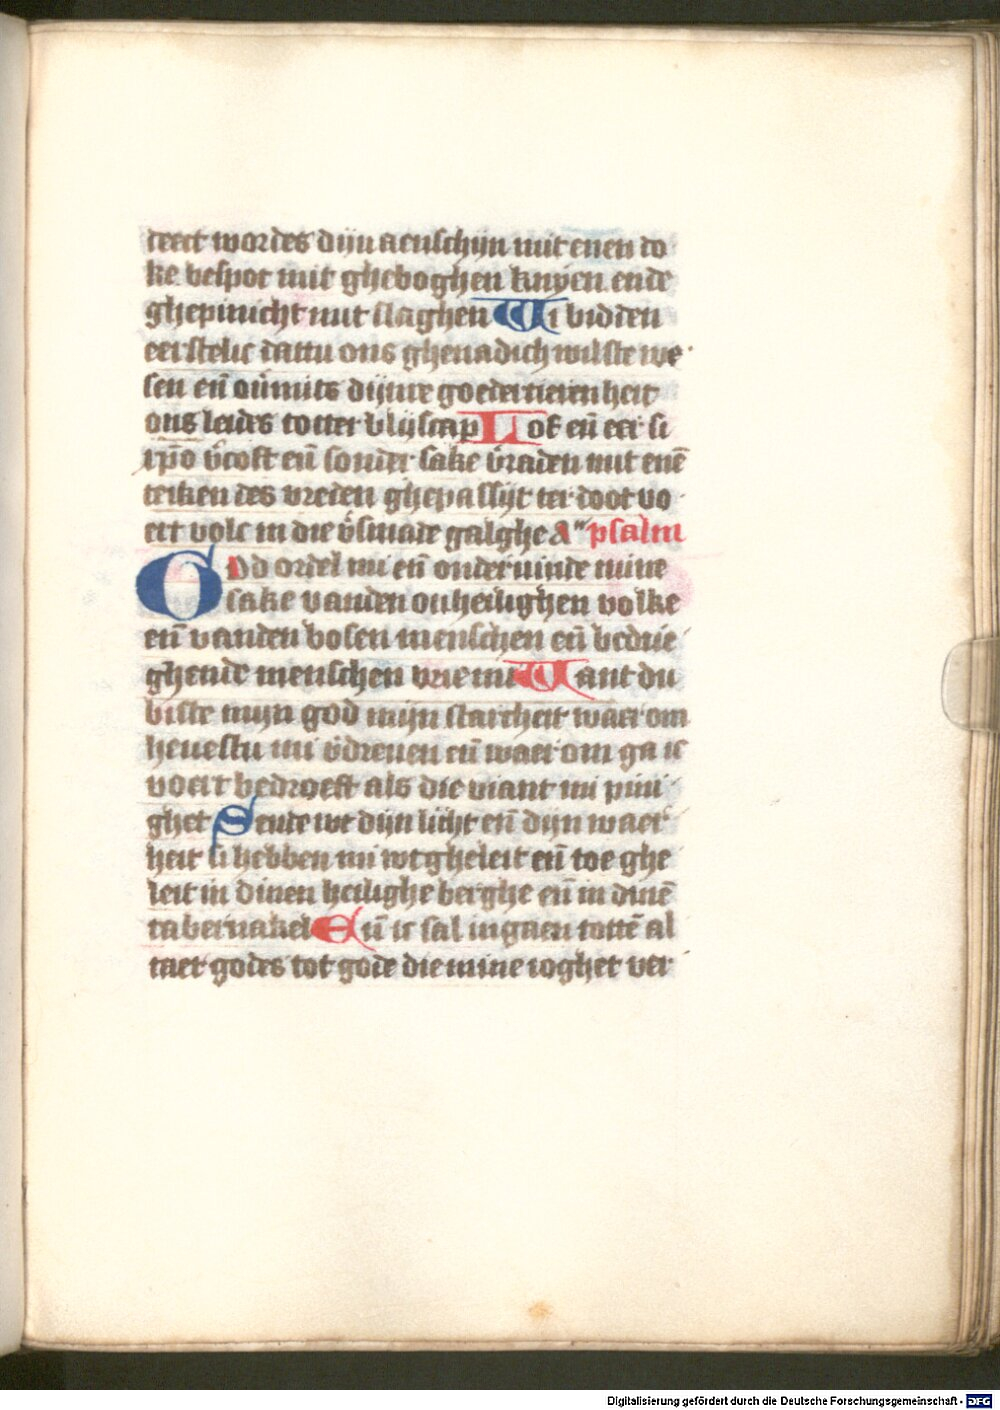 teect wordes dijn aenschijn mit enen do
ke bespot mit gheboghen knyen ende
ghepinicht mit slaghen Wi bidden
eerstelic dattu ons ghenadich wilste we
sen eñ ouͥmits dijnre goedertierenheit
ons leides totter blijscap Lof eñ eer si
xp̄o v̾coft eñ sonder sake v̾raden mit enē
teiken des vreden ghepassijt ter doot vo
ert volc in die v̾smade galghe A" psalm
God ordel mi eñ onderuinde mine
sake vanden onheilighen volke
eñ vanden bosen menschen eñ bedrie
ghende menschen vrie mi Want du
biste mijn god mijn starcheit waer om
heuestu mi v̾dreuen eñ waer om ga ic
voert bedroeft als die viant mi pini
ghet Sende wt dijn licht eñ dijn waer
heit si hebben mi wtgheleit eñ toe ghe
leit in dinen heilighe berghe eñ in dinē
tabernakel Eñ ic sal ingaen tottē al
taer godes tot gode die mine ioghet ver
Digitalisierung gefördert durch die Deutsche Forschungsgemeinschaft - DFG